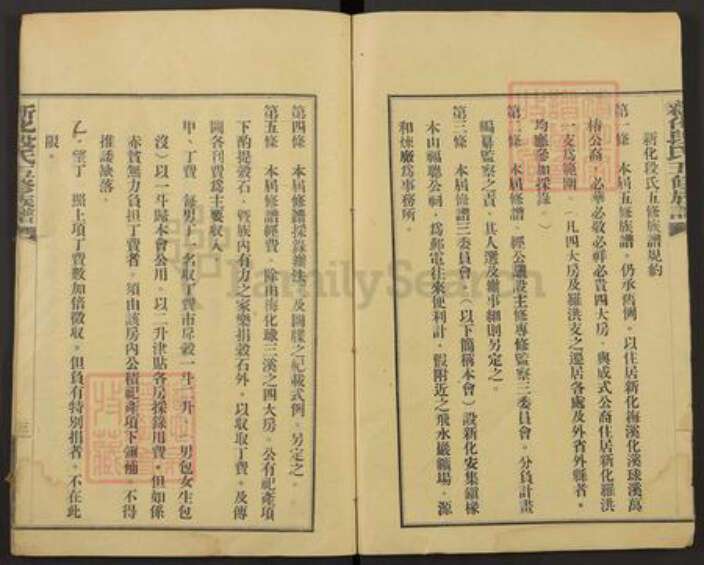 新化段氏五修族譜規約
第一條　本屆五修族譜。仍承舊例。以住居新化梅溪化溪球溪萬
椿公裔。必華必敬必祥必貴四大房。與成式公裔住居新化羅洪
一支爲範圍。（凡四大房及羅洪支之遷居各處及外省外縣者。
均應參加採錄。）
第二條　本屆修譜。經公議設主修專修監察三委員會。分負計畫
編纂監察之責。其人選及辦事細則另定之。
第三條　本屆修譜三委員會（以下簡稱本會）設新化安集鎮樣
木山福聰公祠。爲郵電往來便利計。假附近之飛水巖鑛場。源
和煉廠爲事務所。
第四條　本屆修譜採錄辦法。及圖牒之記載式例。另定之。
第五條　本屆修譜經費。除由海化球三溪之四大房。公有祀產項
下酌提穀石。曁族內有力之家樂捐穀石外。以収取丁費。及傳
圖各刊費爲主要収入
甲、丁費　每男丁一名取丁費市斛穀一斗 升。（男包女生包
沒）以一斗歸本會公用。以二升津貼各房採錄用費。但如係
赤貧無力負担丁費者。須由該房內公積祀產項下彌補。不得
推諉缺落。
乙、望丁　照上項丁費數加倍徵収。但負有特別捐者。不在此
限。
新化段氏五修族譜
三
新化段氏五修族譜
FamilySearch